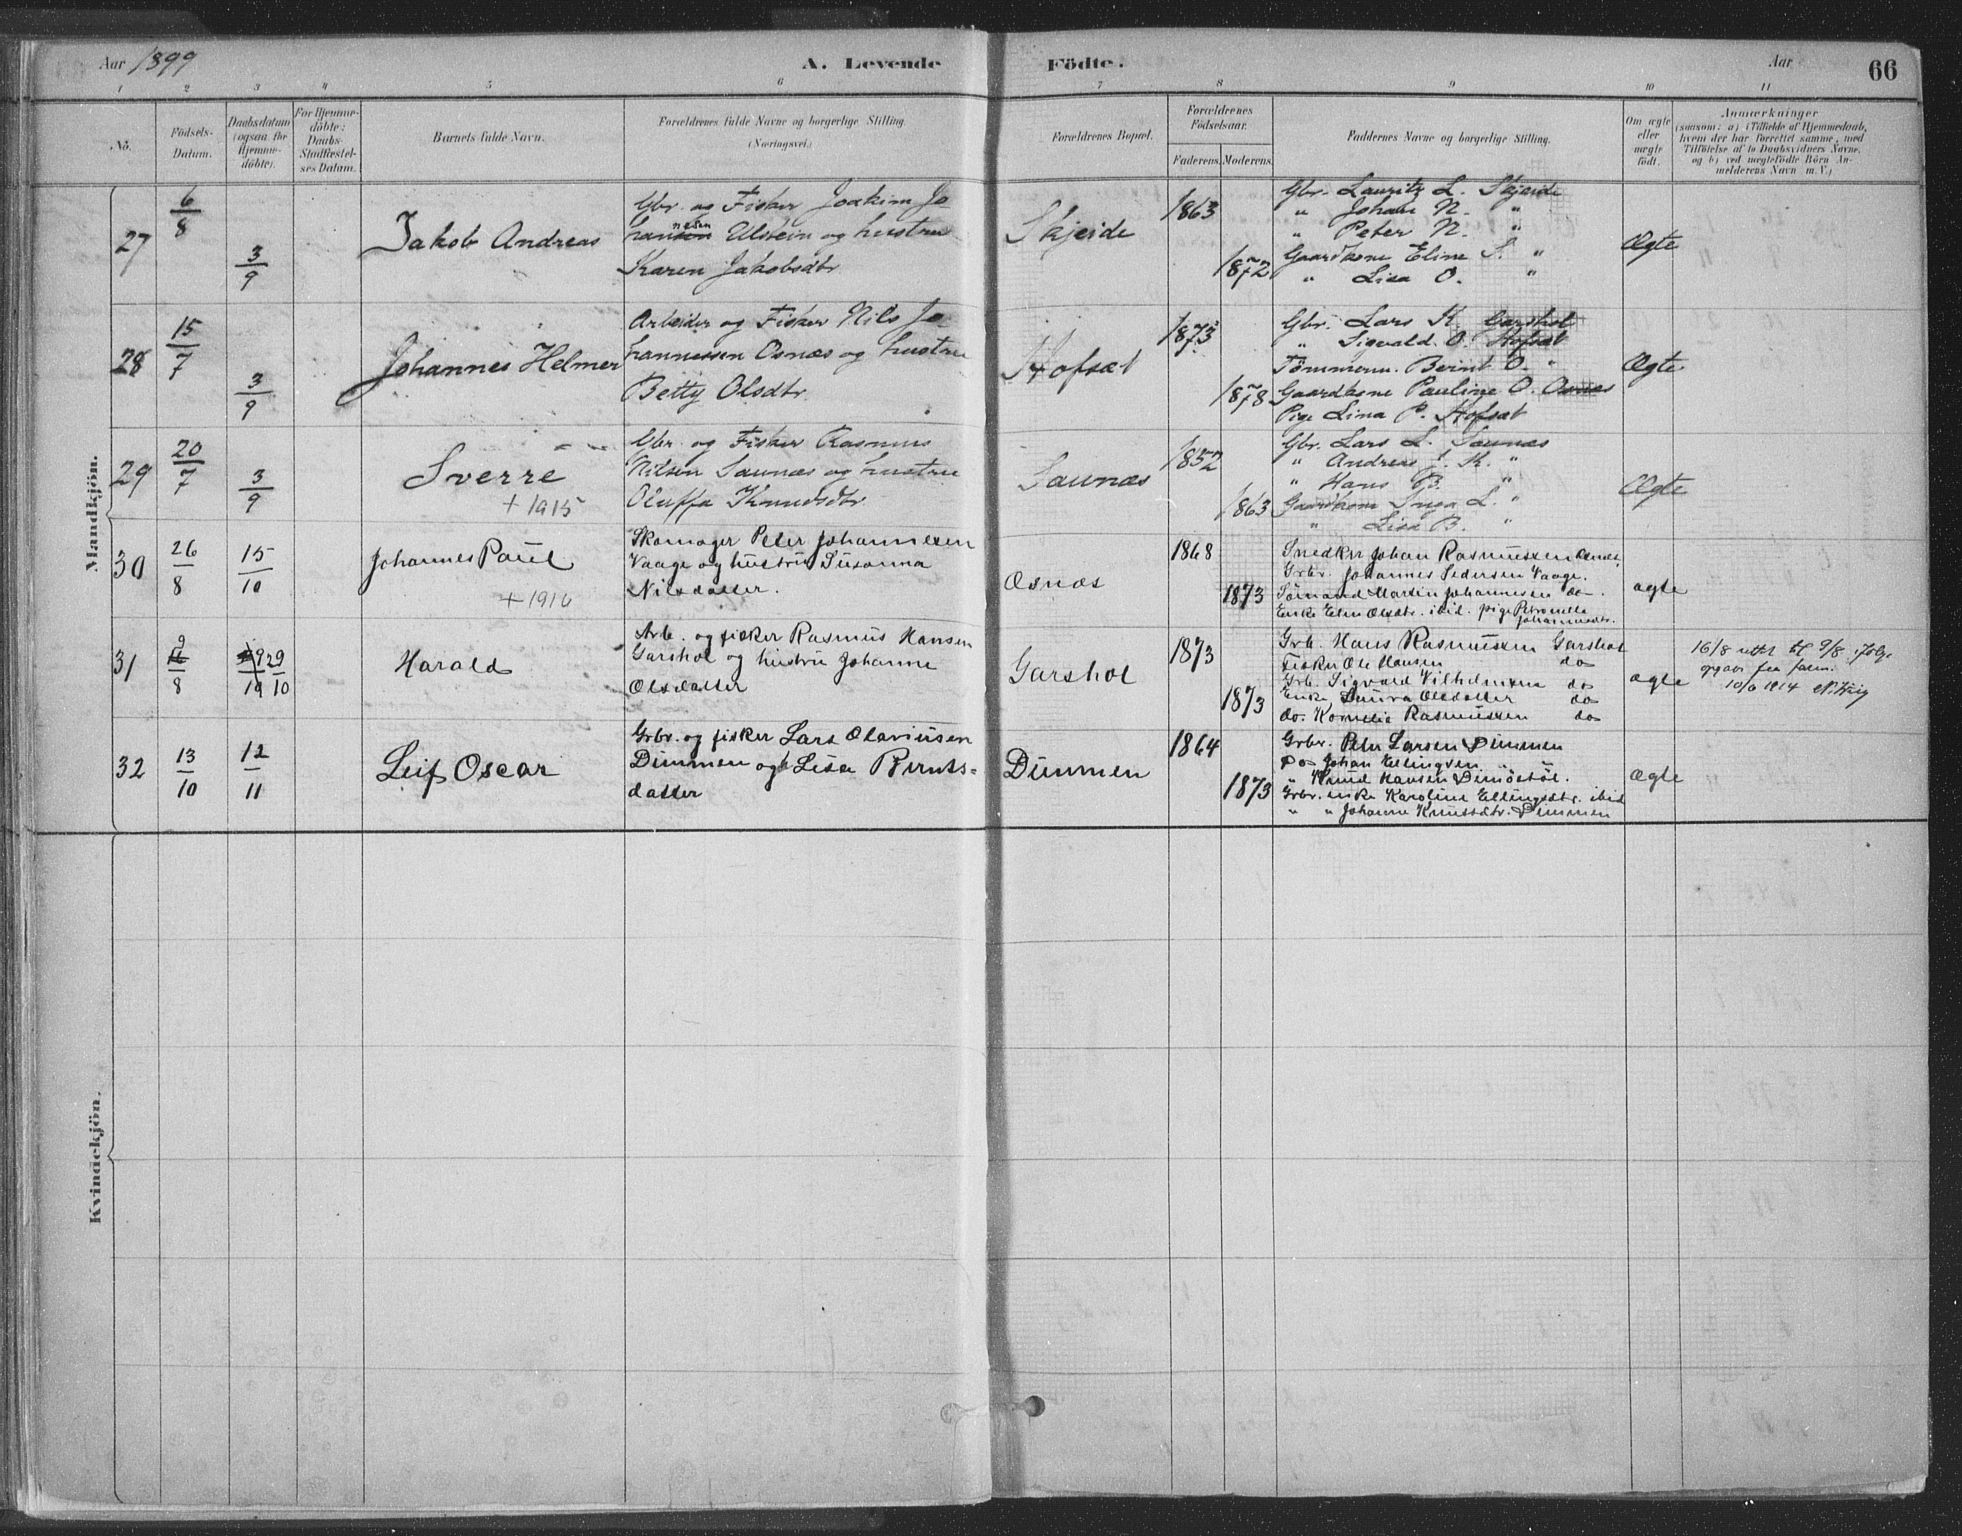 Aar 1899
A. Levende
Födte.
Aar
66
1 2 3 4 5 6 7 8 9 10 11
No.
Födsels-
Datum.
Daabsdatum
(ogsaa for
Hjemme-
döbte).
For Hjemme-
döbte:
Daabs-
Stadfæstel-
ses Datum.
Barnets fulde Navn.
Forældrenes fulde Navne og borgerlige Stilling.
(Næringsvei.)
Forældrenes Bopæl.
Forældrenes
Födselsaar.
Faderens. Moderens.
Faddernes Navne og borgerlige Stilling.
Om ægte
eller
uægte
födt.
Anmærkninger
(saasom: a) i Tilfælde af Hjemmedaab,
hvem der har forrettet samme, med
Tilföielse af to Daabsvidners Navne,
og b) ved uægtefödte Börn An-
melderens Navn m. V.)
Mandkjön.
27
6/8
3/9
Jakob Andreas
Gbr. og Fisker Joakim Jo
hansen nesen Ulstein og hustru
Karen Jakobsdtr.
Skjeide
1863
1872
Gbr. Lauritz L. Skjeide
" Johan N. "
" Peter N. "
Gaardkone Eline S. "
" Lisa O. "
Ægte
28
15/7
3/9
Johannes Helmer
Arbeider og Fisker Nils Jo
hannessen Osnæs og hustru
Betty Olsdtr.
Hofsæt
1873
1878
Gbr. Lars K. Garshol
" Sigvald O. Hofsæt
Tömmerm. Bernt O. "
Gaardkone Pauline O. Osnæs
Pige Lina P. Hofsæt
Ægte
29
20/7
3/9
Sverre
+ 1915
Gbr. og Fisker Rasmus
Nilsen Saunæs og hustru
Oluffa Knudsdtr.
Saunæs
1852
1863
Gbr. Lars L. Saunæs
" Andreas K. "
" Hans B. "
Gaardkone Inga L. "
" Lisa B. "
Ægte
30
26/8
15/10
Johannes Paul
+ 1916
Skomager Peter Johannesen
Vaage og hustru Susanna
Nilsdatter.
Osnæs
1868
1873
Snedker Johan Rasmussen Osnæs,
Grbr. Johannes Pedersen Vaage.
Sömand Martin Johannesen do.
Enke Elen Olsdtr. ibid. pige Petronelle
Johannesdtr.
ægte
31
9
16/8
29/10
Harald
Arb. og fisker Rasmus Hansen
Garshol og hustru Johanne
Olsdatter
Garshol
1873
1873
Grb. Hans Rasmussen Garshol
Fisker Ole Hansen do
Grb. Sigvald Vilhelmsen do
Enke Laura Olsdatter do
do. Kornelia Rasmussen do
ægte
16/8 rettet til 9/8 ifølge
opgave fra faren.
10/6 1914
32
13/10
12/11
Leif Oscar
Grbr. og fisker Lars Olaviusen
Dimmen og h Lisa Bernts-
datter
Dimmen
1864
1873
Grbr. Peter Larsen Dimmen
Do Johan Ellingsen " "
" Knud Hansen Dimöstöl.
Grbr. enke Karoline Ellingsdtr. ibid
" " Johanne Knutsdtr. Dimmen
ægte
Kvindekjön.